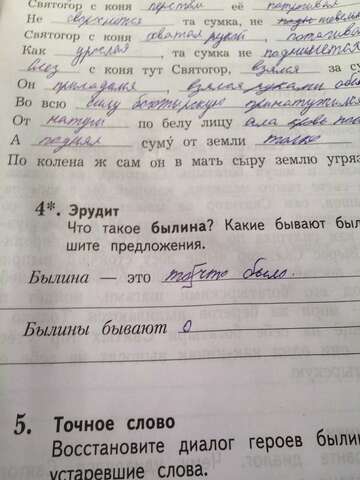 Святогор с коня перстом её
Не сворохнится та сумка, не
Святогор с коня хватая рукой,
Как урослая, та сумка не поднимется
слез с коня тут Святогор, взялся за су
Он приладился, взялся руками
Во всю силу богатырскую принатужился
От натуги по белу лицу ала кровь
А поднял суму́ от земли только
По колена ж сам он в мать сыру землю угряз
4*. Эрудит
Что такое былина? Какие бывают был
шите предложения.
Былина — это то что было.
Былины бывают о
5. Точное слово
Восстановите диалог героев былин
устаревшие слова.